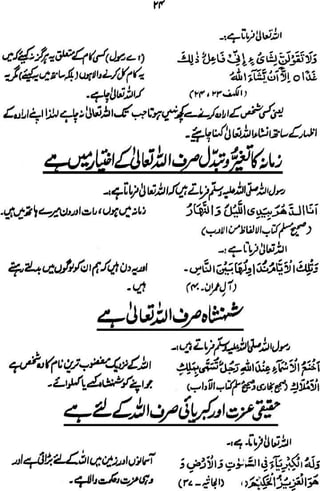 ۲۴
اللہ تعالیٰ فرماتا ہے:۔
وَلَا تَقُوْلَنَّ لِشَایْءٍ اِنِّیْ فَاعِلٌ ذٰلِكَ (اے رسول) کسی کام کے متعلق یہ ہرگز نہ کیئے کہ میں
غَدًا اِلَّآ اَنْ یَّشَآءَ اللّٰهُ یہ کام کل کرنے والا ہوں (بلکہ ساتھ میں یہ کہیئے) مگر یہ
(الکہف ۲۳، ۲۴) کہ اللہ تعالیٰ چاہے۔
یعنی کسی شخص کے ارادہ کرنے سے کچھ نہیں ہوتا جب تک اللہ تعالیٰ نہ چاہے لہٰذا اپنے ارادہ کے
اظہار کے ساتھ انشاء اللہ تعالیٰ کہنا چاہیئے۔
زمانہ کا تغیر و تبدل صرف اللہ تعالیٰ کے اختیار میں ہے
رسول اللہ صلی اللہ علیہ وسلم فرماتے ہیں کہ اللہ تعالیٰ فرماتا ہے:۔
اَنَا الدَّهْرُ بِیَدِیَ اللَّیْلُ وَالنَّهَارُ زمانہ میں ہوں، رات اور دن میرے ہاتھ میں ہیں۔
(صحیح مسلم کتاب الالفاظ من الادب)
اللہ تعالیٰ فرماتا ہے:۔
وَتِلْكَ الْاَیَّامُ نُدَاوِلُهَا بَیْنَ النَّاسِ۔ اور یہ دن ہیں کہ ہم ان کو لوگوں میں بدلتے رہتے
(آل عمران۔ ۱۴۰) ہیں۔
شہنشاہ صرف اللہ تعالیٰ ہے
رسول اللہ صلی اللہ علیہ وسلم فرماتے ہیں:۔
اَخْنَعُ الْاَسْمَآءِ عِنْدَ اللّٰهِ رَجُلٌ تَسَمّٰی بِمَلِكِ اللہ کے نزدیک مغضوب ترین نام کا وہ شخص ہے
الْاَمْلَاكِ (صحیح بخاری و صحیح مسلم کتاب الآداب) جو اپنے کو شہنشاہ کہے یا کہلوائے۔
حقیقی عزت اور کبریائی صرف اللہ کے لئے ہے
اللہ تعالیٰ فرماتا ہے:۔
وَلَهُ الْكِبْرِیَآءُ فِی السَّمٰوٰتِ وَالْاَرْضِ وَ آسمانوں اور زمین میں اللہ کے لئے بڑائی ہے اور
هُوَ الْعَزِیْزُ الْحَكِیْمُ (الجاثیہ۔ ۳۷) وہی عزت و حکمت والا ہے۔